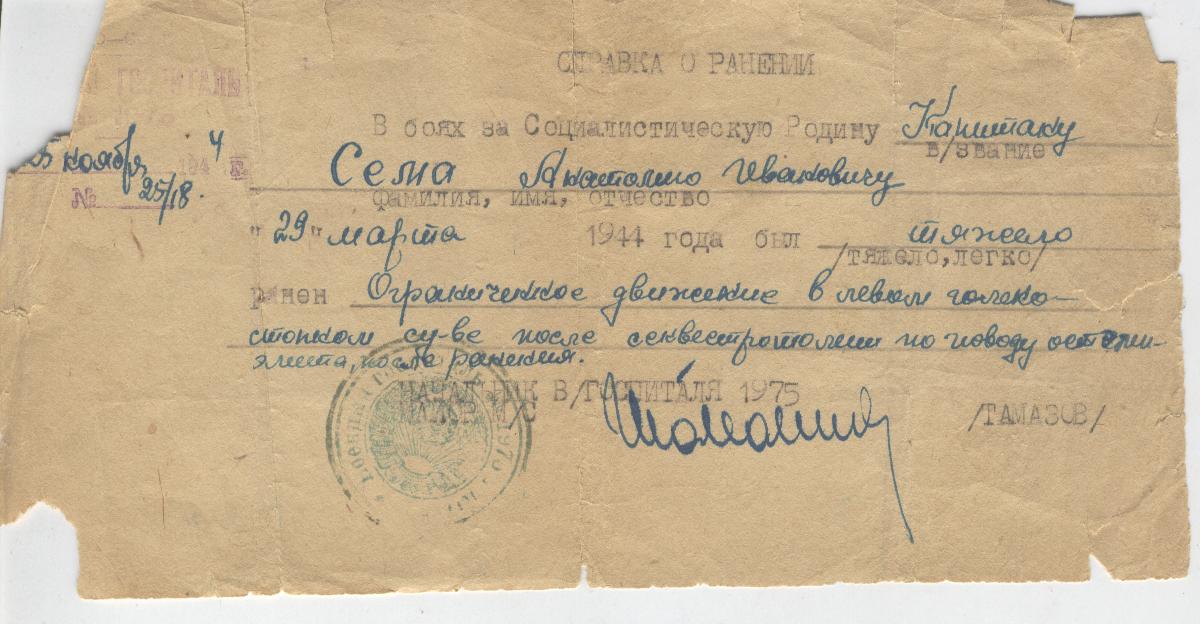 СПРАВКА О РАНЕНИИ
ГОСПИТАЛЬ
В боях за Социалистическую Родину Капитану
в/звание
25 ноября 1944 г.
№ 25/18.
Сема Анатолию Ивановичу
фамилия, имя, отчество
"29" марта 1944 года был тяжело
/тяжело,легко/
ранен Ограниченное движение в левом голено-
стопном су-ве после секвестротомии по поводу остеми-
элита, после ранения.
НАЧАЛЬНИК В/ГОСПИТАЛЯ 1975
МАЙОР М/С /ТАМАЗОВ/